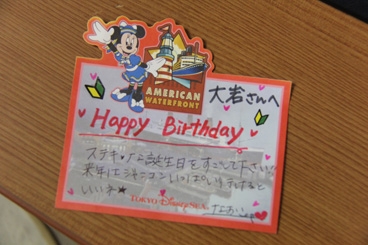 AMERICAN
WATERFRONT
大岩さんへ
Happy Birthday
ステキな誕生日をすごして下さい
来年は
いっぱい
いいネ★
TOKYO DISNEYSEA